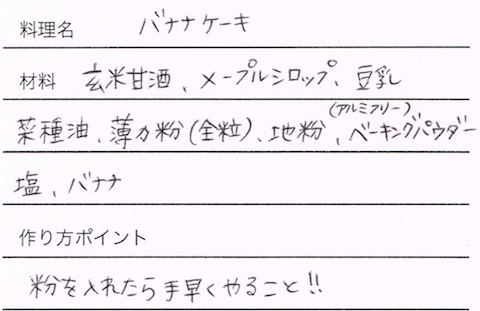 料理名 バナナケーキ
材料 玄米甘酒、メープルシロップ、豆乳
(アルミフリー)
菜種油、薄力粉(全粒)、地粉、ベーキングパウダー
塩、バナナ
作り方ポイント
粉を入れたら手早くやること!!